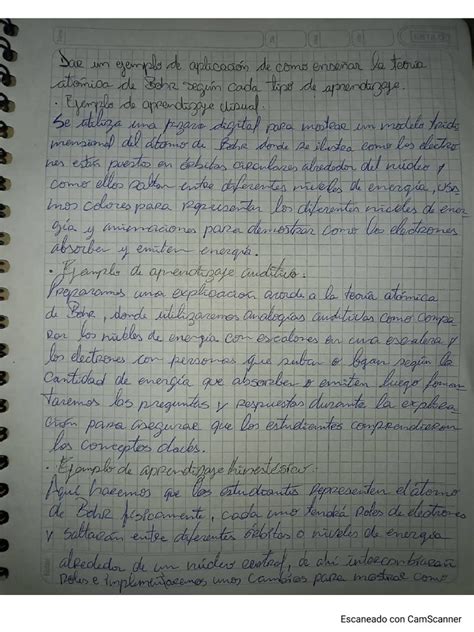 Dar un ejemplo de aplicación de como enseñar la teoria
atómica de Bohr según cada tipo de aprendizaje.
· Ejemplo de aprendizaje visual.
Se utiliza una pizarra digital para mostrar un modelo tridi
mensional del átomo de Bohr donde se ilustra como los electro
nes están puestos en órbitas circulares alrededor del núcleo y
como ellos saltan entre diferentes niveles de energía, usa
mos colores para representar los diferentes niveles de ener
gía y animaciones para demostrar como los electrones
absorben y emiten energía.
· Ejemplo de aprendizaje auditivo.
Preparamos una explicación acorde a la teoría atómica
de Bohr, donde utilizaremos analogías auditivas como compa
rar los niveles de energía con escalones en una escalera y
los electrones con personas que suban o bajan según la
cantidad de energía que absorben o emiten luego fomen
taremos las preguntas y respuestas durante la explica
ción para asegurar que los estudiantes comprendieron
los conceptos dados.
· Ejemplo de aprendizaje kinestésico.
Aquí hacemos que los estudiantes representen el átomo
de Bohr físicamente, cada uno tendrá roles de electrones
y saltarán entre diferentes órbitas o niveles de energía
alrededor de un núcleo central, de ahí intercambiarán
roles e implementaremos unos cambios para mostrar como
Escaneado con CamScanner